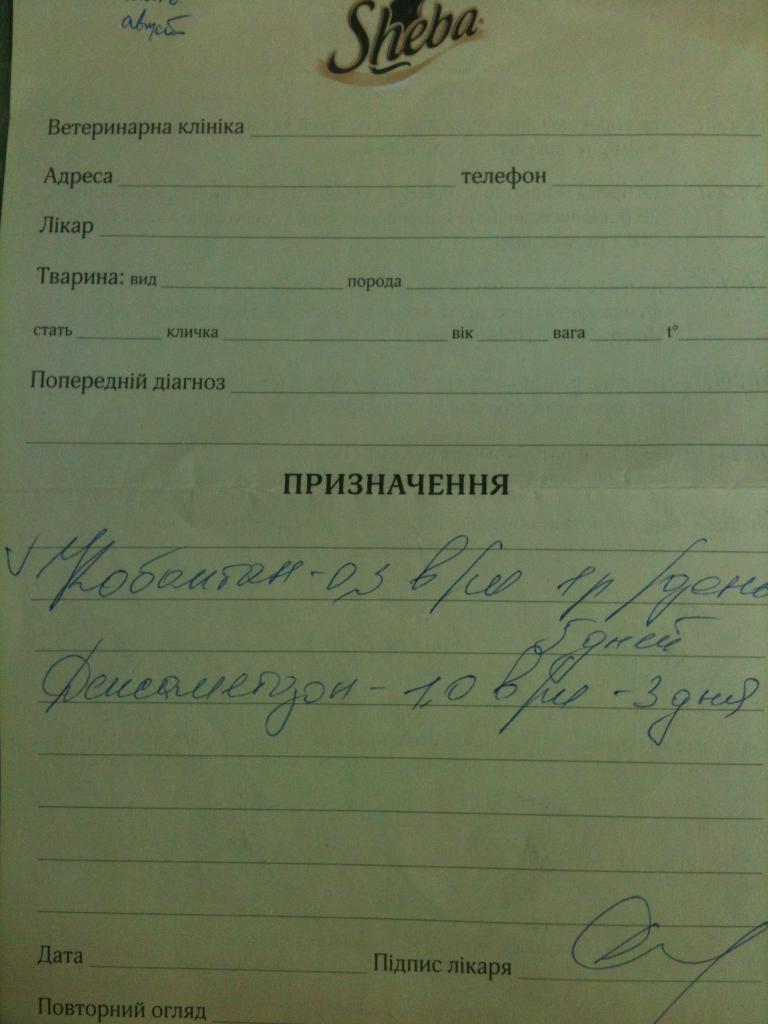 август
Sheba
Ветеринарна клініка
Адреса телефон
Лікар
Тварина: вид порода
стать кличка вік вага t°
Попередній діагноз
ПРИЗНАЧЕННЯ
- 0,3 в/м 1р/день
5 дней
Дексаметазон - 1,0 в/м - 3 дня
Дата Підпис лікаря
Повторний огляд